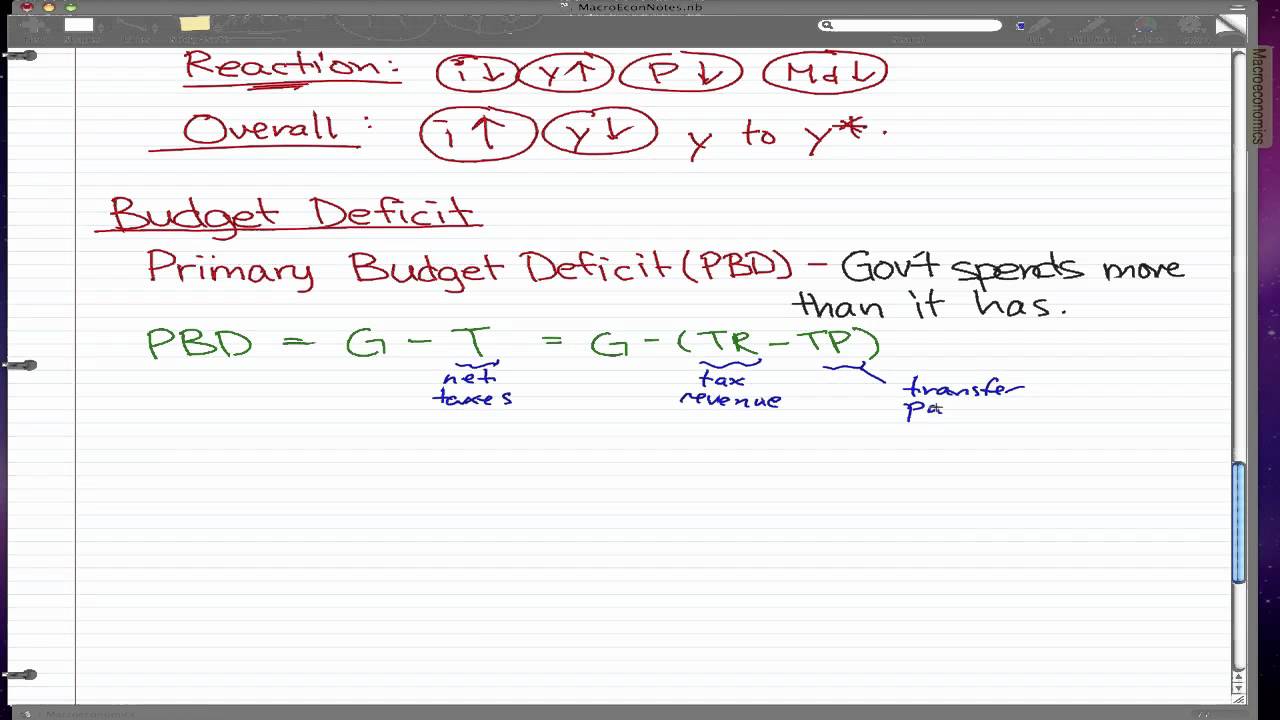 MacroEconNotes.nb
Search
Macroeconomics
Reaction: i↓ Y↑ P↓ Md↓
Overall: i↑ y↓ y to y*.
Budget Deficit
Primary Budget Deficit (PBD) – Gov't spends more
than it has.
PBD = G – T = G – (TR – TP)
net
taxes
tax
revenue
transfer
pa
Macroeconomics